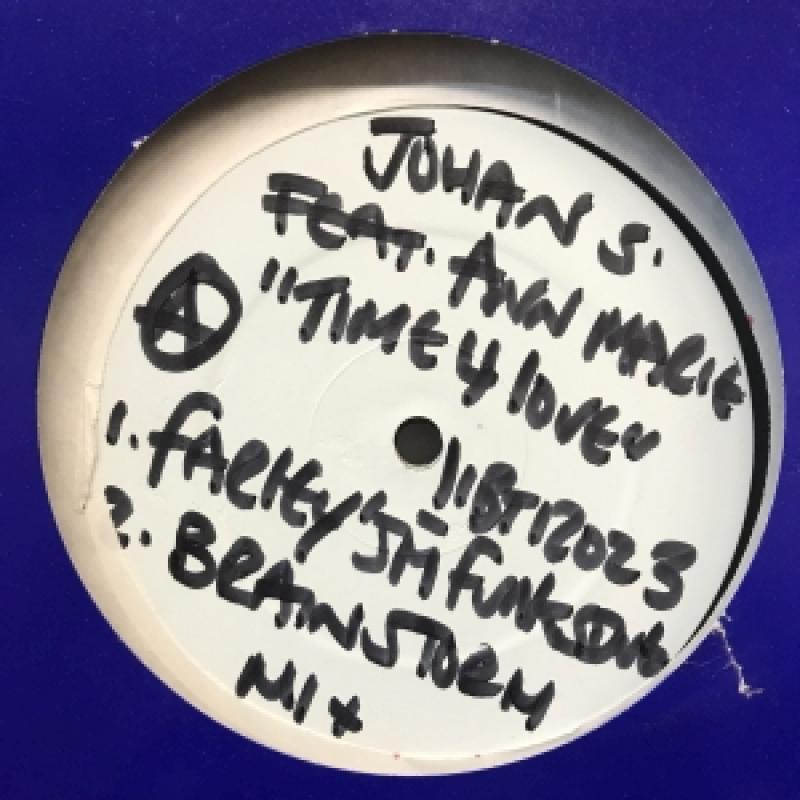 JOHAN S.
FEAT. ANN MARIE
A "TIME 4 LOVE"
1. FARLEY
2. BRAINSTORM
MIX